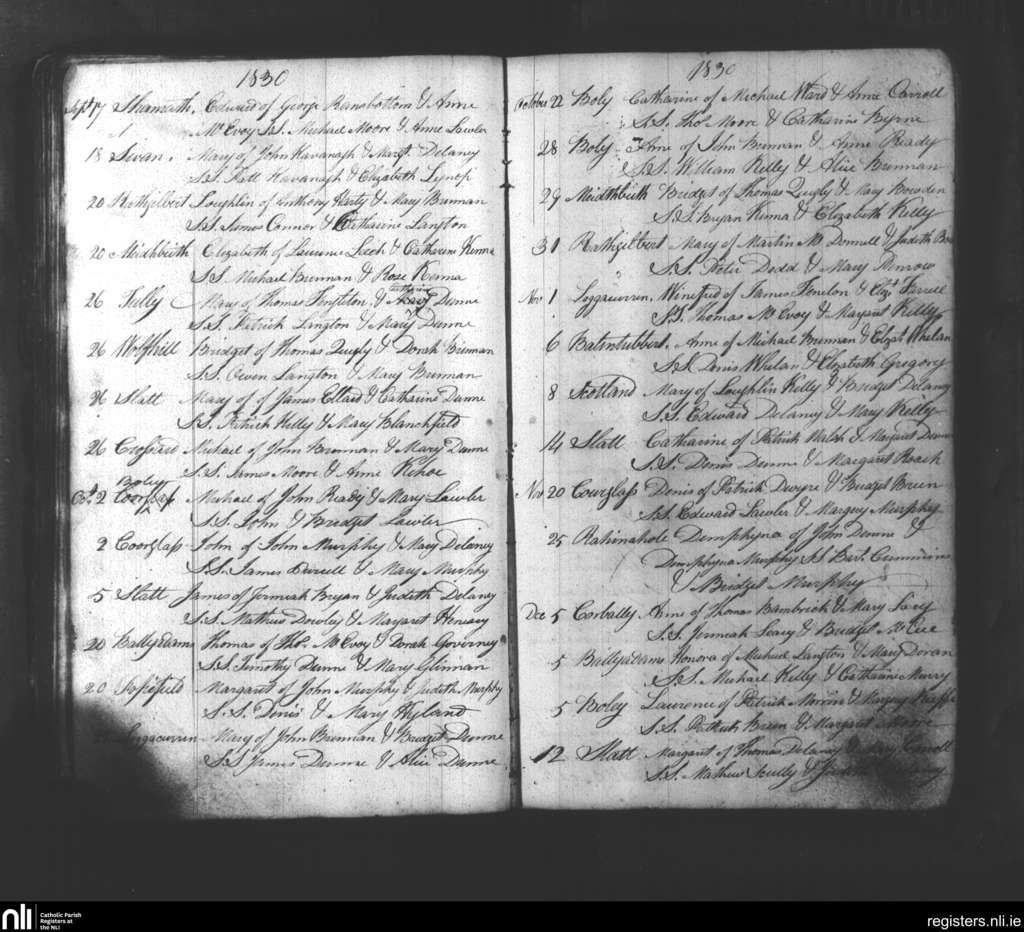 1830
Sept 17 Shanrath, Edward of George Ranabottom & Anne
McEvoy S.S. Michael Moore & Anne Lawler
18 Swan, Mary of John Kavanagh & Margt. Delaney
S.S. Kavanagh & Elizabeth
20 Rathgilbert Loughlin of Anthony Harty & Mary Brennan
S.S. James Connor & Catharine Langton
20 Midhbuth Elizabeth of Laurence & Catharine Kenna
S.S. Michael Brennan & Rose Kenna
26 Tully Mary of Thomas & Catharine Dunne
S.S. Patrick Langton & Mary Dunne
26 Wolfhill Bridget of Thomas Quigly & Dorah Brennan
S.S. Owen Langton & Mary Brennan
26 Slatt Mary of of James Ellard & Catharine Dunne
S.S. Patrick Kelly & Mary Blanchfield
26 Michael of John Brennan & Mary Dunne
S.S. James Moore & Anne Kehoe
Boley
Oct. 2 Coorglass Michael of John Ready & Mary Lawler
S.S. John & Bridget Lawler
2 Coorglass John of John Murphy & Mary Delaney
S.S. James & Mary Murphy
5 Slatt James of Jermiah Bryan & Judith Delany
S.S. Mathew Dowley & Margaret Hennesy
20 Ballyadams Thomas of Thos. McEvoy & Dorah Governey
S.S. Timothy Dunne & Mary
20 Margaret of John Murphy & Judith Murphy
S.S. Denis & Mary Hyland
Loggacurren Mary of John Brennan & Bridget Dunne
S.S. James Dunne & Alice Dunne
1830
October 22 Boly Catharine of Michael Ward & Anne Carroll
S.S. Thos Moore & Catharine Byrne
28 Boly Anne of John Brennan & Anne Ready
S.S. William Kelly & Alice Brennan
29 Bridget of Thomas Quigly & Mary Bowden
S.S. Bryan Kinna & Elizabeth Kelly
31 Rathgilbert Mary of Martin McDonnell & Judith
S.S. Peter Dodd & Mary
Nov 1 Loggacurren, Winefred of James Fenelon & Elizt. Farrell
S.S. Thomas McEvoy & Margaret Kelly
6 Batintubbert, Anne of Michael Brennan & Elizabt Whelan
S.S. Denis Whelan & Elizabeth Gregory
8 Scotland Mary of Loughlin Kelly & Bridget Delany
S.S. Edward Delaney & Mary Kelly
14 Slatt Catharine of Patrick Walsh & Margaret Dunne
S.S. Denis Dunne & Margaret Roach
Nov 20 Courglass Denis of Patrick Dwyre & Bridget Brien
S.S. Edward Lawler & Margery Murphy
25 Rahinahole Demphyna of John Dunne &
Demphyna Murphy S.S. Cummins
& Bridget Murphy
Dec 5 Corbally Anne of Thomas Bambrick & Mary
S.S. Jermiah & Bridget
5 Ballyadams Honora of Michael Langton & Mary Doran
S.S. Michael Kelly & Catharine Murry
5 Boley Laurence of Patrick & Margery
S.S. Patrick Brien & Margaret
12 Slatt Margaret of Thomas Delaney & Mary Carroll
S.S. Mathew Scully & Judith
nli Catholic Parish
Registers at
the NLI
registers.nli.ie